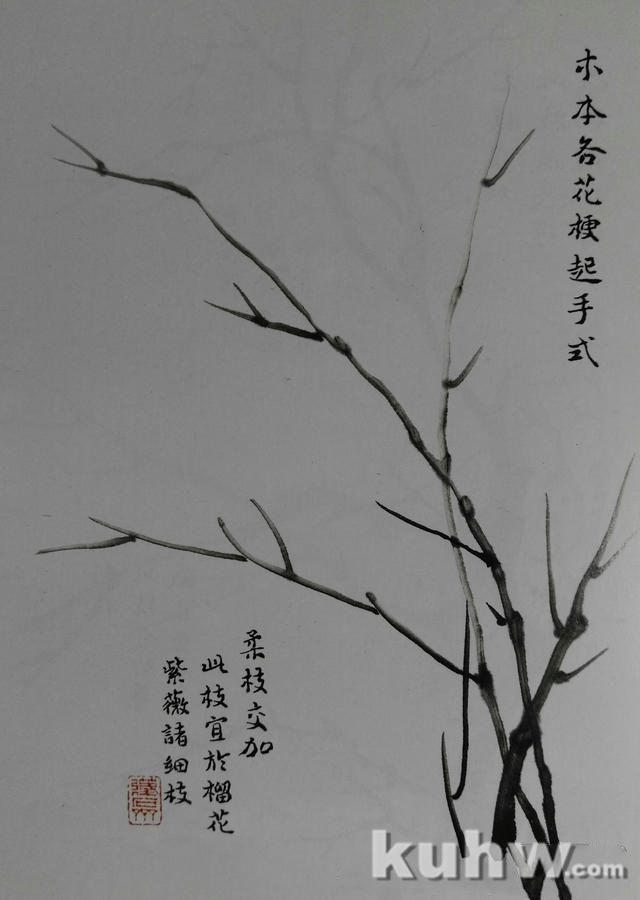 木本各花梗起手式
柔枝交加
此枝宜於榴花
紫薇諸細枝
kuhw.com